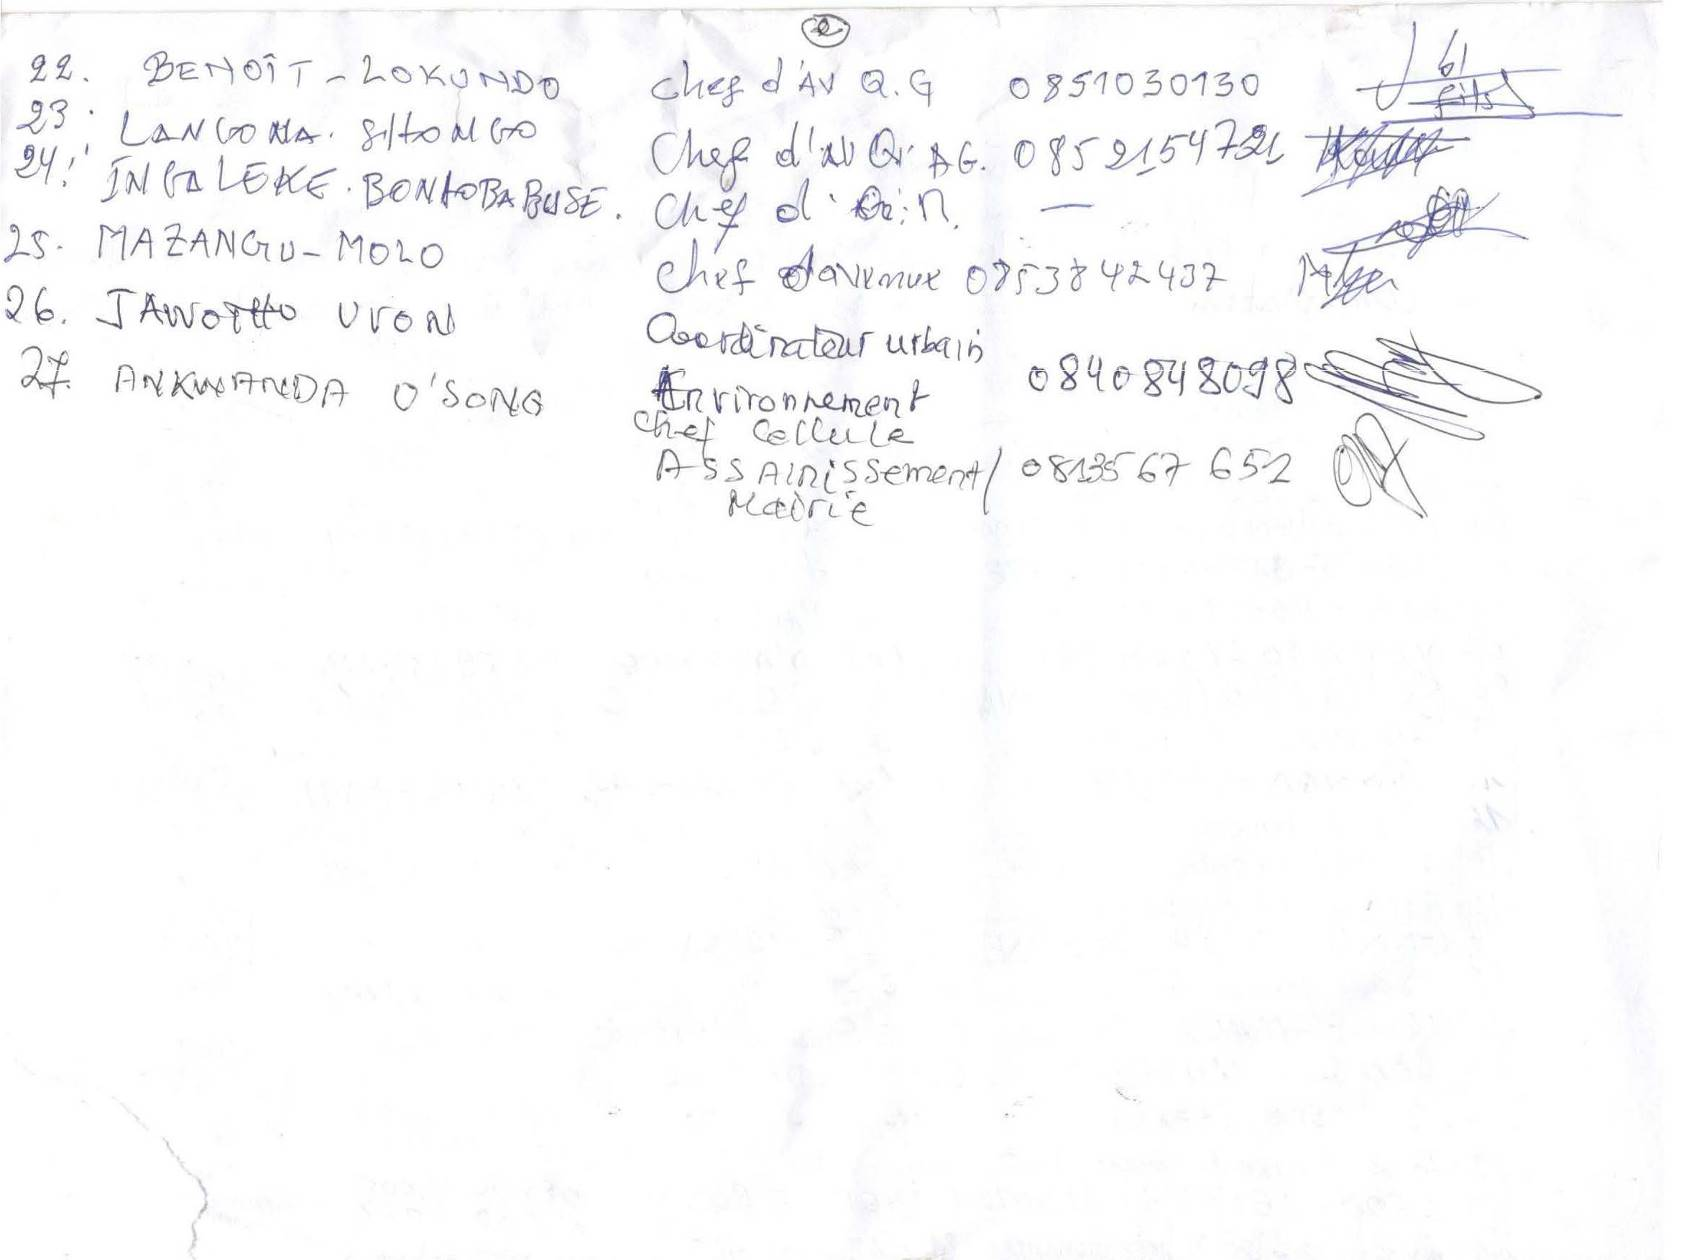 2
22. BENOÎT - LOKUNDO chef d'AV Q.G 0851030130
23. LANGOMA. SHONGO Chef d'AV Q. AG. 0852154721
24. INGALEKE. BONTOBABUSE. Chef d'
25. MAZANGU - MOLO chef d'avenue 0853842437
26. JAWOTHO UVON Coordinateur urbain
Environnement 0840848098
27. ANKWANDA O'SONG chef cellule
Assainissement/ 0813567652
Mairie